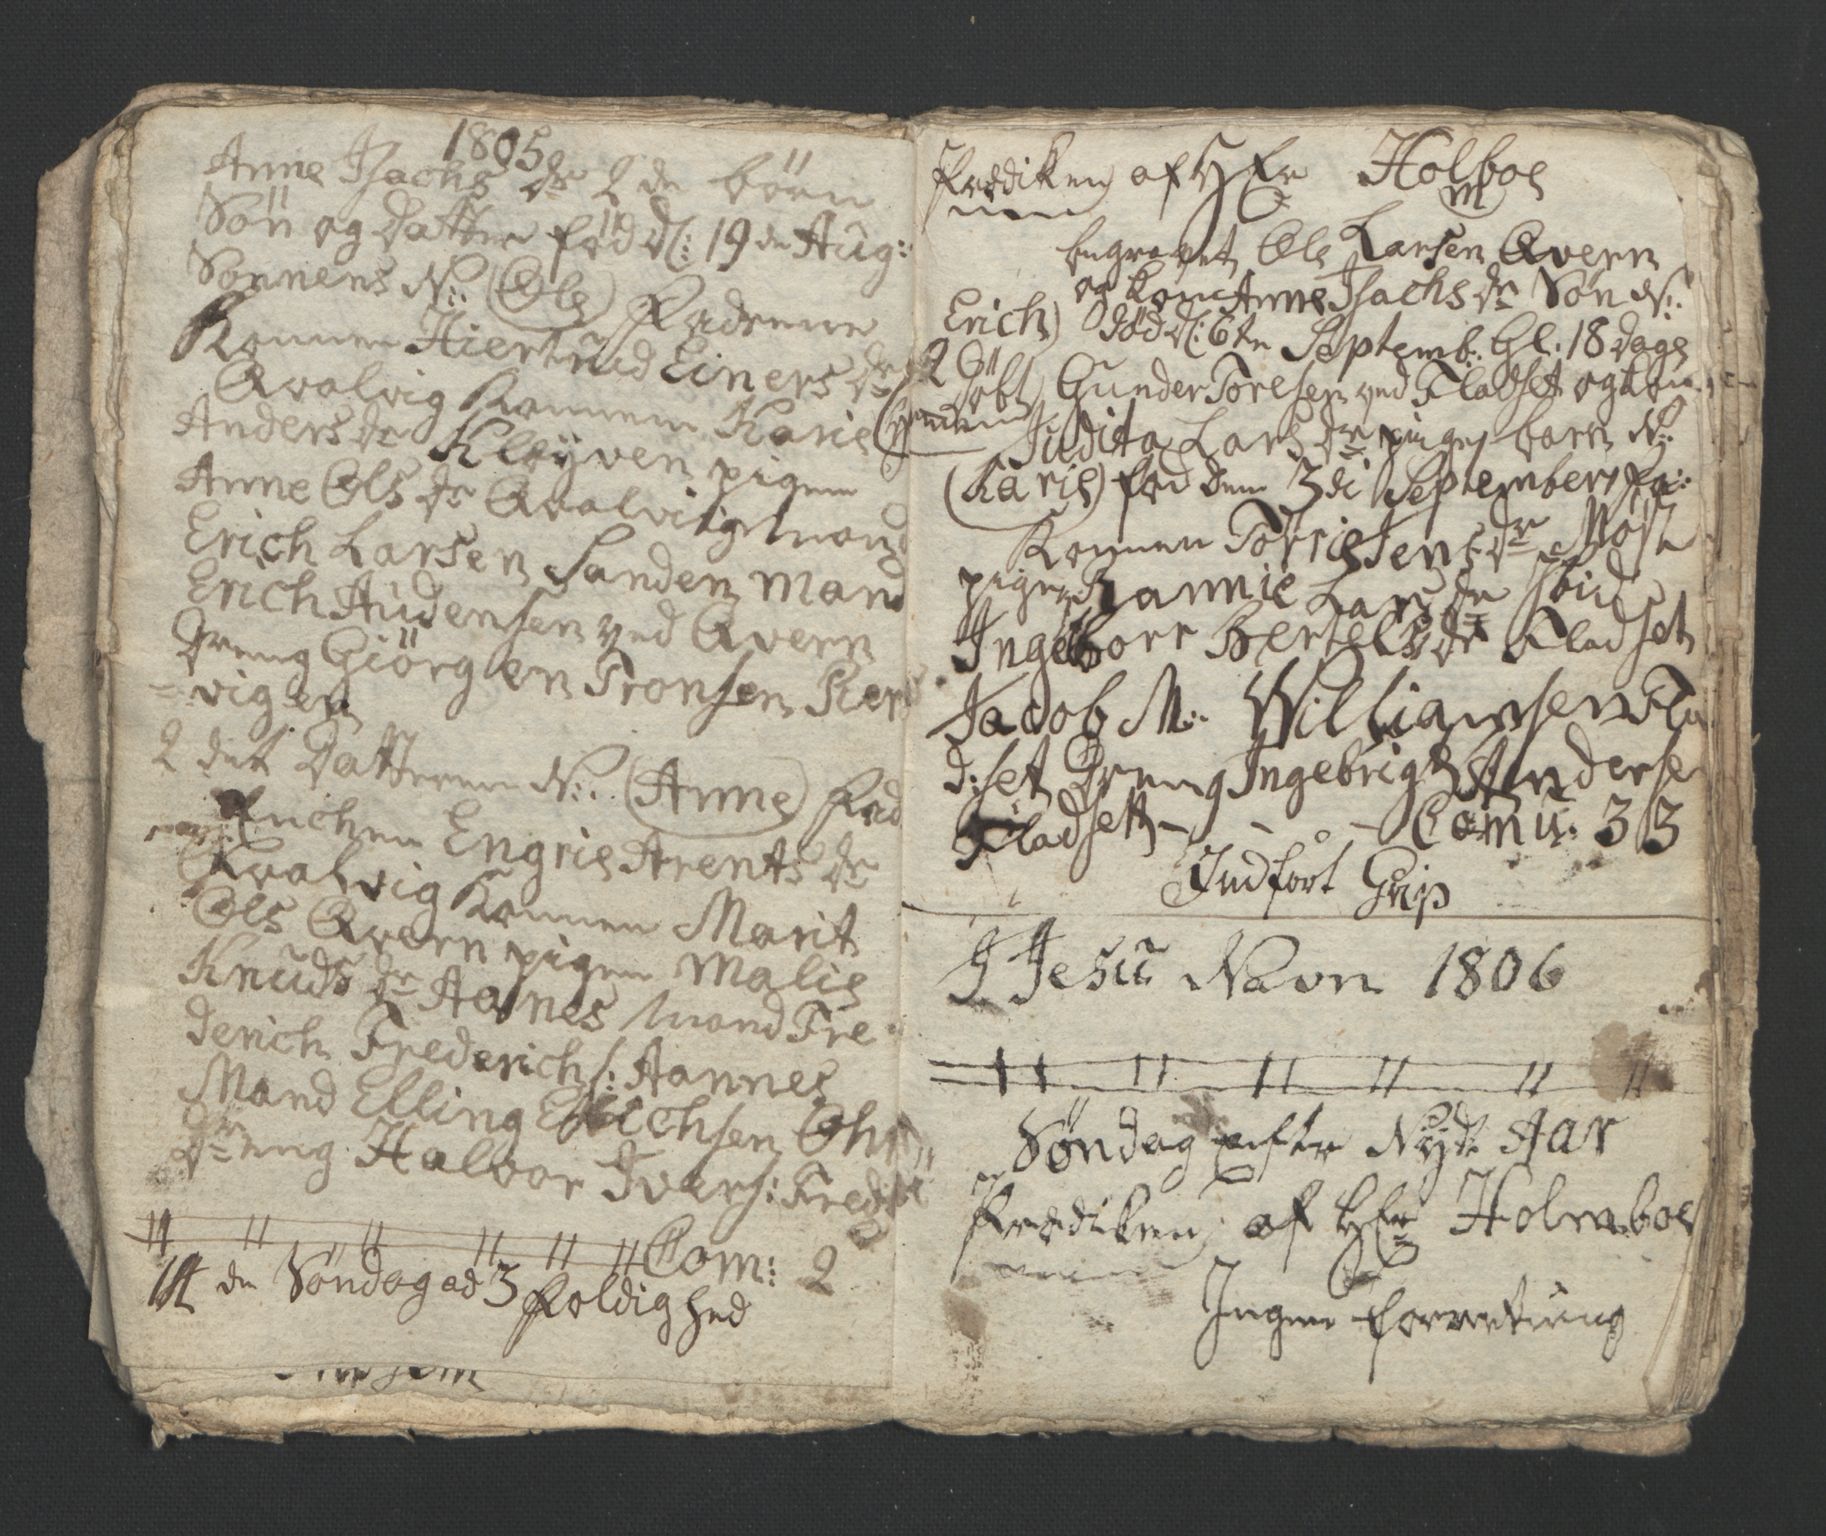 1805
Anne Isachs dr 2 de börn
Sön og Datter föd d: 19 de Aug:
Sönnens N: (Ole) Fadrene
Konnen Hiertrud Einers dr
Qvalvig Konnen Karie
Anders dr Kleyven pigen
Anne Ols dr Qvalvig mand
Erich Larsen Sanden mand
Erich Audensen ved Qvern
dreng Giörgen Tronsen Kers
= vigen
2 det Datteren N: (Anne) Fad
Enchen Engrie Arents dr
Qvalvig Konnen Marit
Ols Qvern pigen Malie
Knuds dr Aanes Mand Fre
derich Frederichs: Aannes
Mand Elling Erichsen Ohr
dreng Halvor Ivers: Freds
Com: 2
14 de Söndag ad 3 foldighed
Prædiken af H Hr Holboe
m
begravet Ole Larsen Qvern
og Kone Anne Isachs dr Sön N:
Erich) död d: 6te Septemb: Gl. 18 dage
2 Dito döbt Gunder Toresen ved Fladset og
Judita Lars dr piges barn N:
(Karie) fød den 3di September
Konnen Torrie Tens dr
pigen Rannie Lars dr
Ingeborr Bertels dr Fladset
Jacob M: Williamsen Fla
d:set Dreng Ingebrigt Anderse
Fladseth - - - Comu: 33
Indfört Grip
I Jesu Navn 1806
Söndag efter Nyt Aar
Prædiken af H Hr Holmboe
Ingen forretning